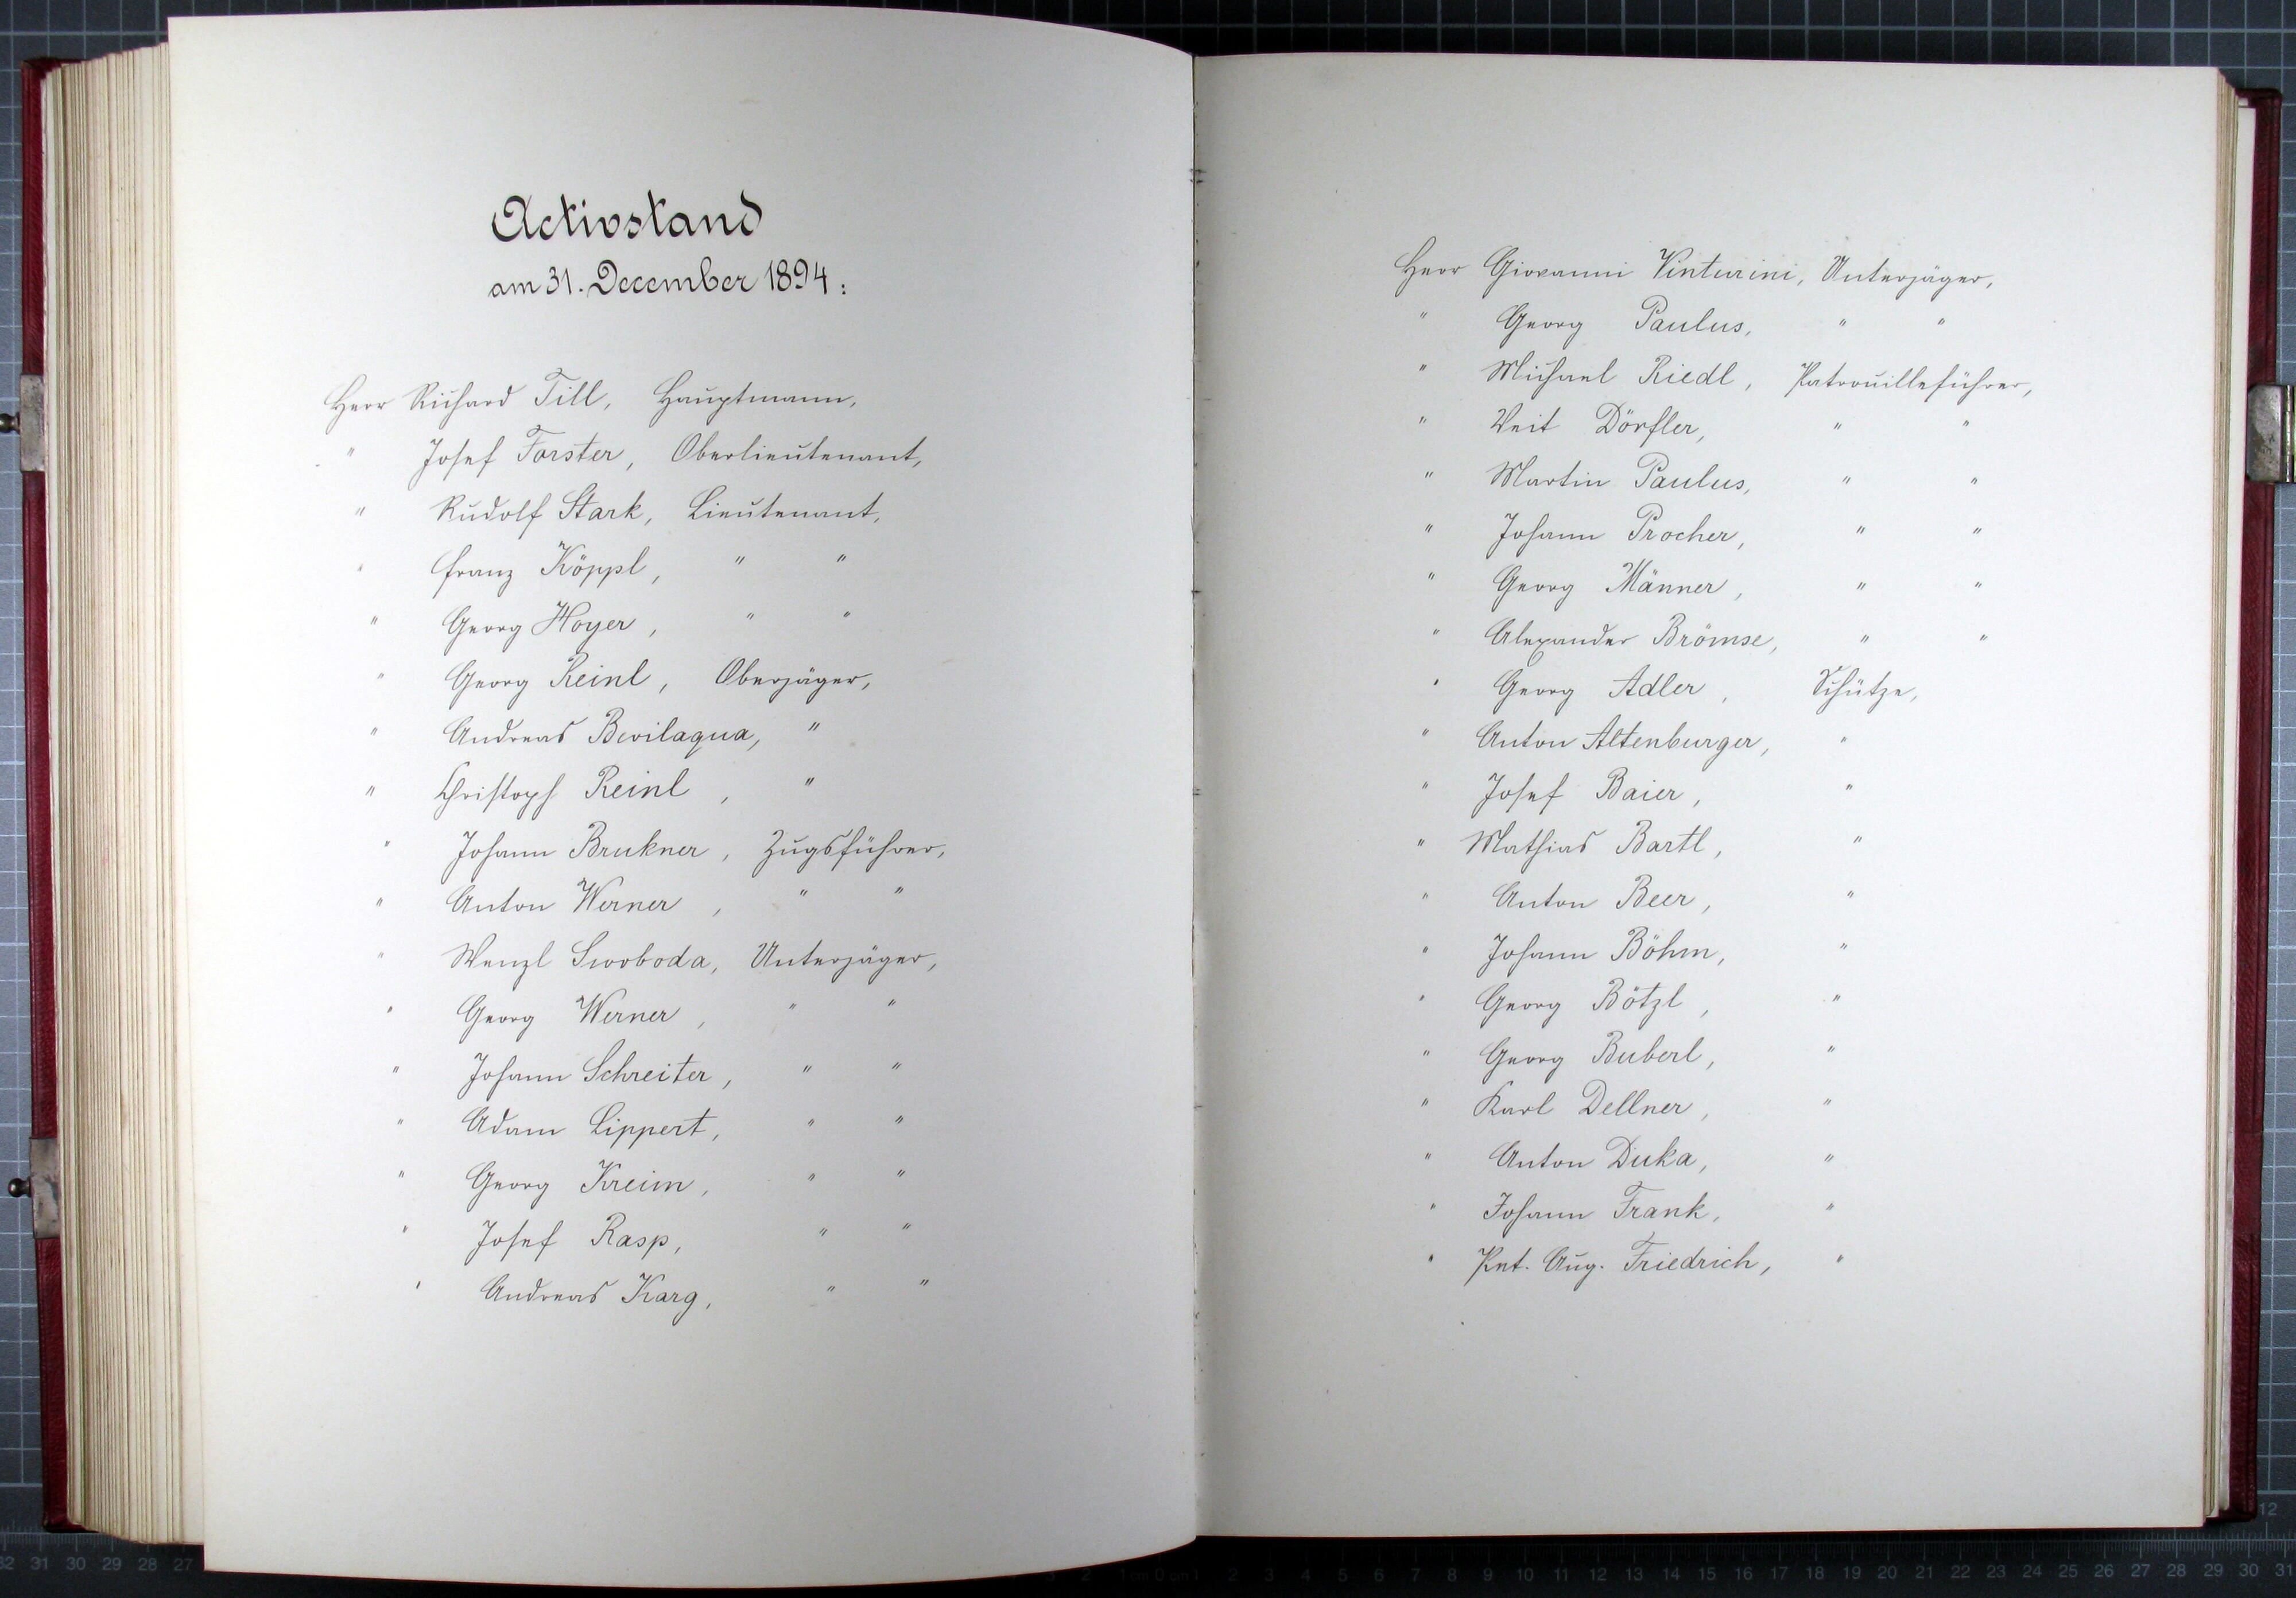 Activstand
am 31. December 1894:
Herr Richard Till, Hauptmann,
" Josef Forster, Oberlieutenant,
" Rudolf Stark, Lieutenant,
" Franz Köppl, " "
" Georg Hoyer, " "
" Georg Reinl, Oberjäger,
" Andreas Bevilaqua, "
" Christoph Reinl, "
" Johann Brukner, Zugsführer,
" Anton Werner, " "
" Wenzl Swoboda, Unterjäger,
" Georg Werner, " "
" Johann Schreiter, " "
" Adam Lippert, " "
" Georg Kreim, " "
" Josef Rasp, " "
" Andreas Karg, " "
Herr Giovanni Vinturini, Unterjäger,
" Georg Paulus, " "
" Michael Riedl, Patrouilleführer,
" Veit Dörfler, " "
" Martin Paulus, " "
" Johann Procher, " "
" Georg Männer, " "
" Alexander Brömse, " "
" Georg Adler, Schütze,
" Anton Altenburger, "
" Josef Baier, "
" Mathias Bartl, "
" Anton Beer, "
" Johann Böhm, "
" Georg Bötzl, "
" Georg Buberl, "
" Karl Dellner, "
" Anton Duka, "
" Johann Frank, "
" Pet. Aug. Friedrich, "
32 31 30 29 28 27
2 1 cm 0 cm 1 2 3 4 5 6 7 8 9 10 11 12 13 14 15 16 17 18 19 20 21 22 23 24 25 26 27 28 29 30 31
12